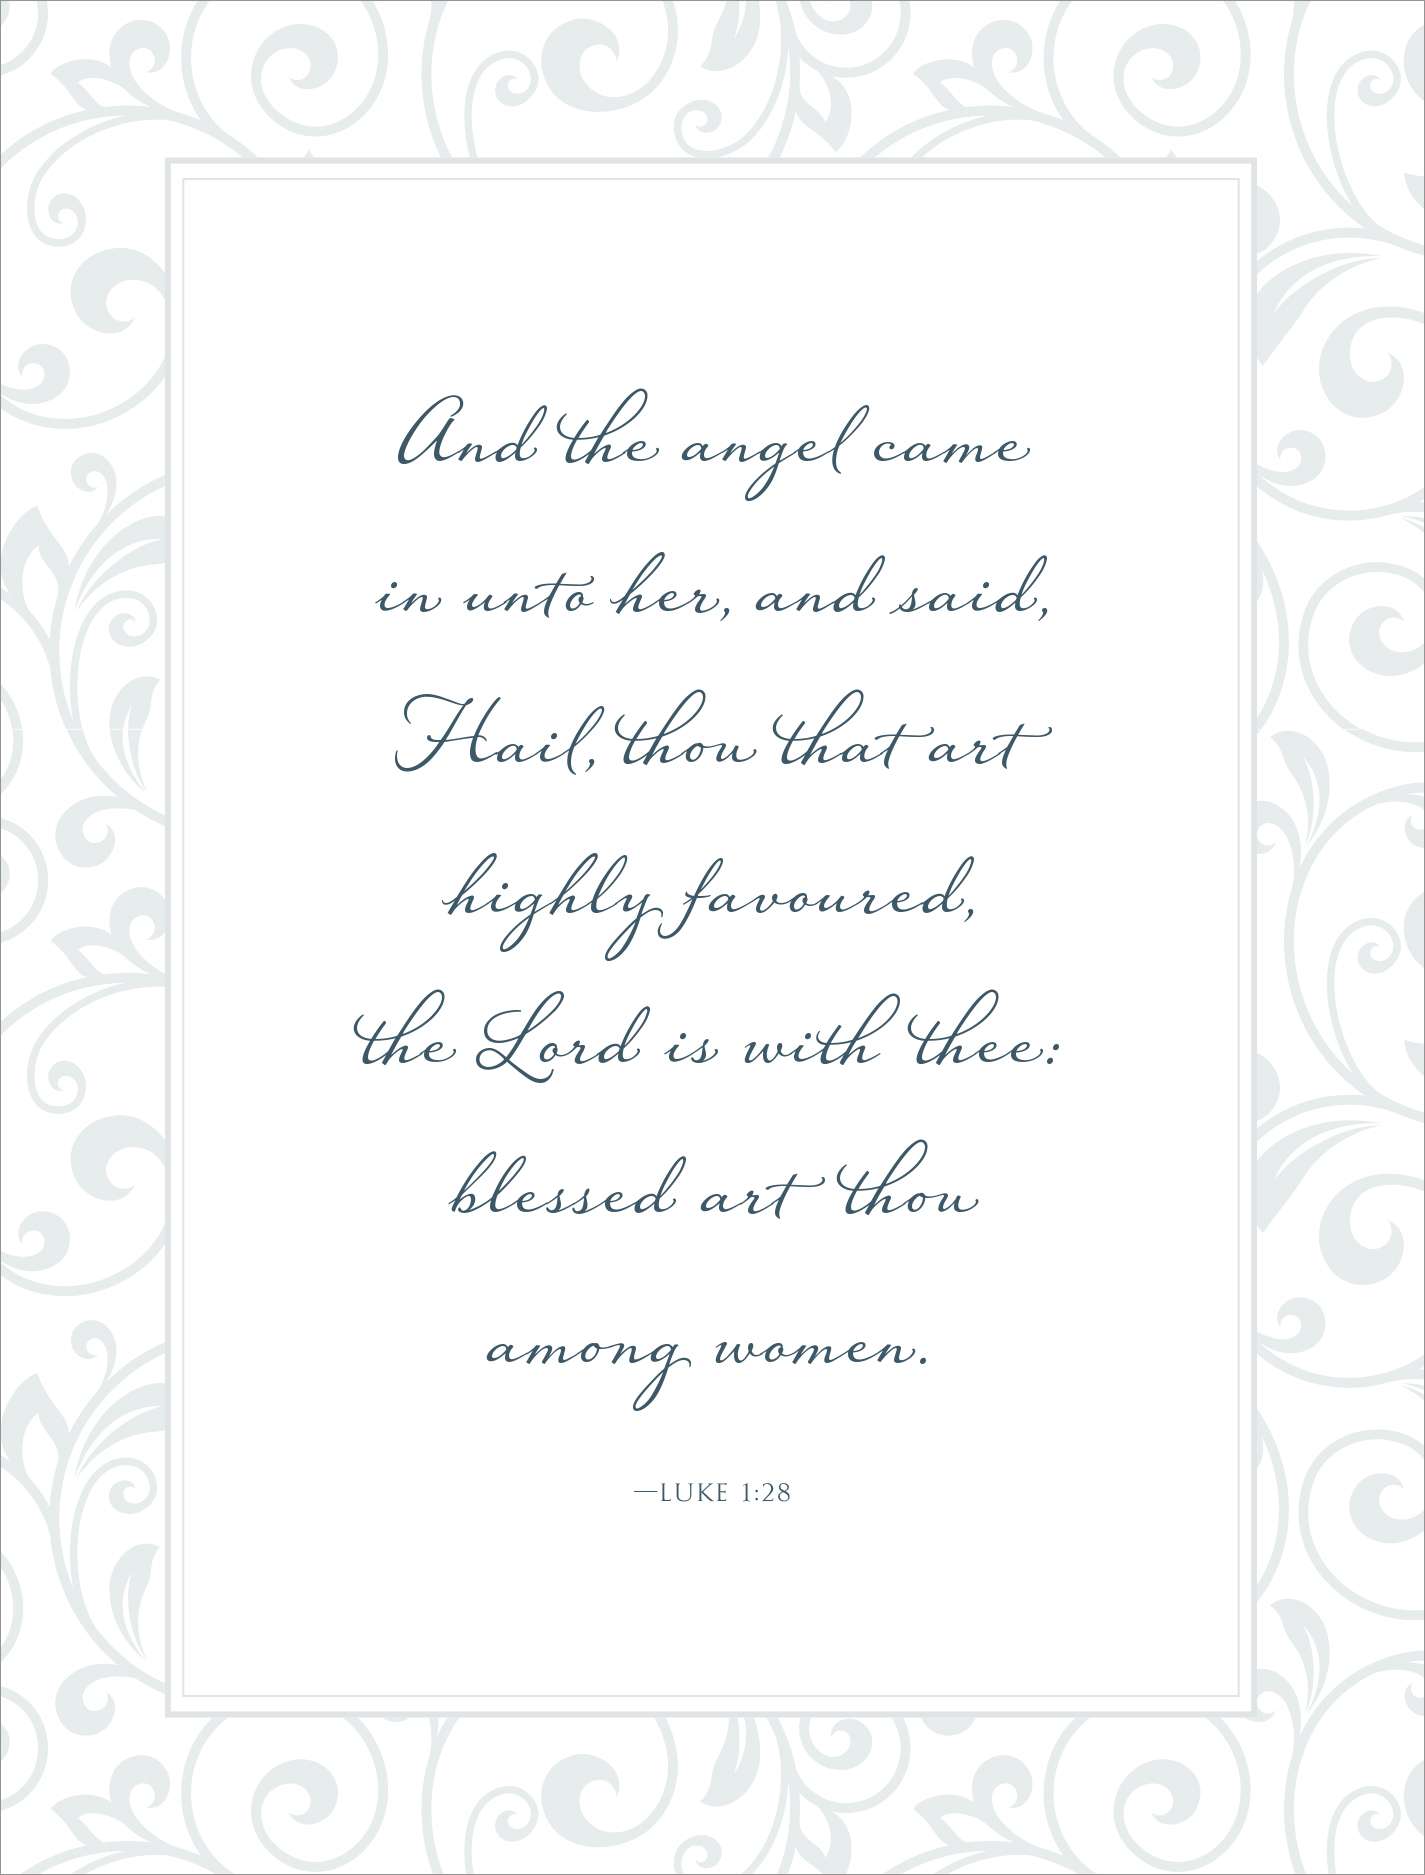 And the angel came
in unto her, and said,
Hail, thou that art
highly favoured,
the Lord is with thee:
blessed art thou
among women.
—LUKE 1:28